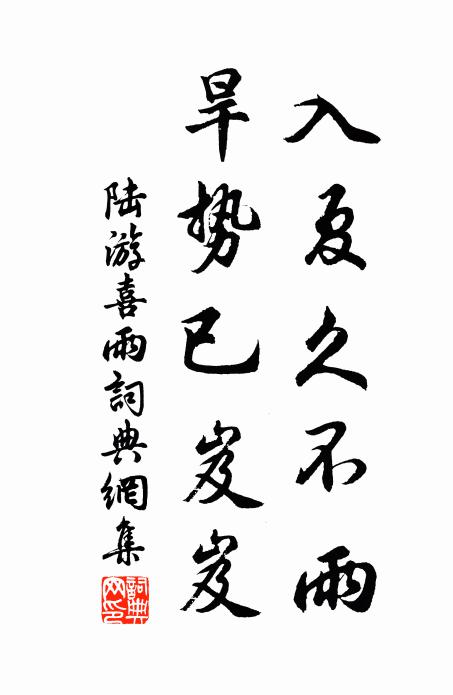 入夏久不雨
旱勢已岌岌
陸游喜雨詞典網集
詞典網印